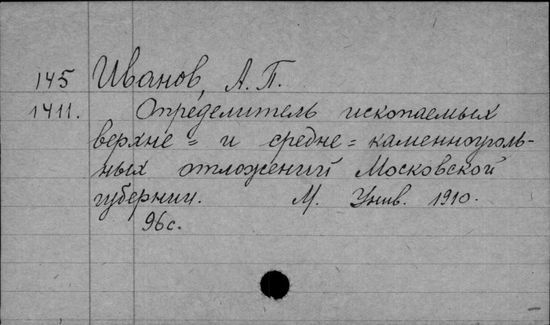 145 Иванов, А. П.
1411. Определитель ископаемых
верхне = и средне = каменноуголь-
ных отложений Московской
губернии. М. Унив. 1910.
96 с.